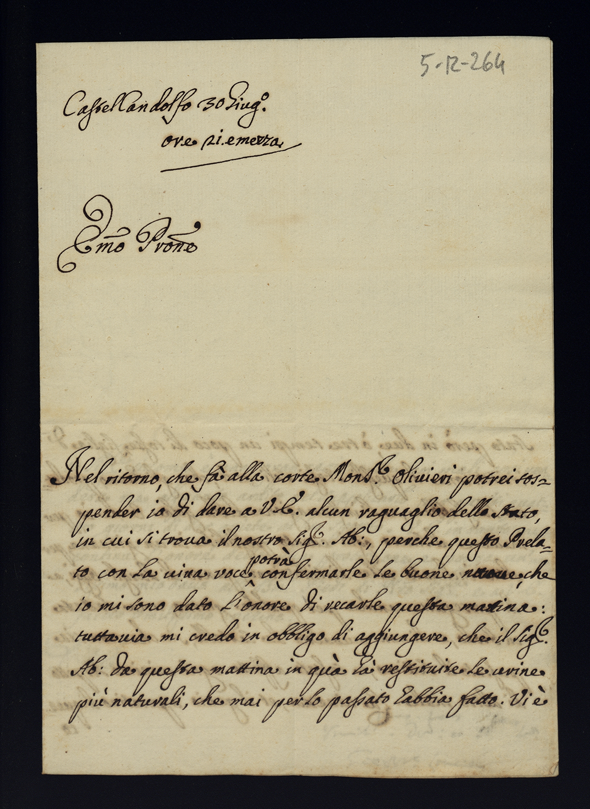 5-12-264
Castellandolfo 30 Giug.º
ore 21. e mezza.
Emo Prone
Nel ritorno, che fà alla corte Mons.r Olivieri potrei sos=
pender io di dare a V.E. alcun raguaglio dello stato,
in cui si trova il nostro Sig.r Ab:, perche questo Prela=
potrà
to con la viva voce confermarle le buone nuove, che
io mi sono dato l'onore di recarle questa matina:
tuttavia mi credo in obbligo di aggiungere, che il Sig.r
Ab: da questa mattina in quà hà restituite le urine
più naturali, che mai per lo passato l'abbia fatto. Vi è